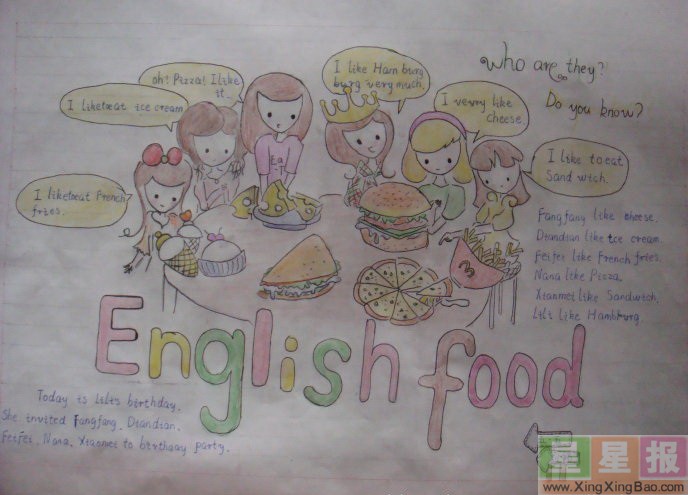 who are they?
Do you know?
oh! Pizza! I like
it.
I like Hamburg
burg very much.
I liketeat ice cream
I vevry like
cheese
I like toeat
Sand witch.
I liketeat French
fries.
Fangfang like cheese.
Diandian like ice cream
Feifei like French fries.
Nana like Pizza.
Xiaomei like Sandwitch.
Lili like Hamburg
English food
Today is Lili's birthday.
She invited Fangfang, Diandian,
Feifei, Nana, Xiaomei to birthday party.
星星报
www.XingXingBao.com